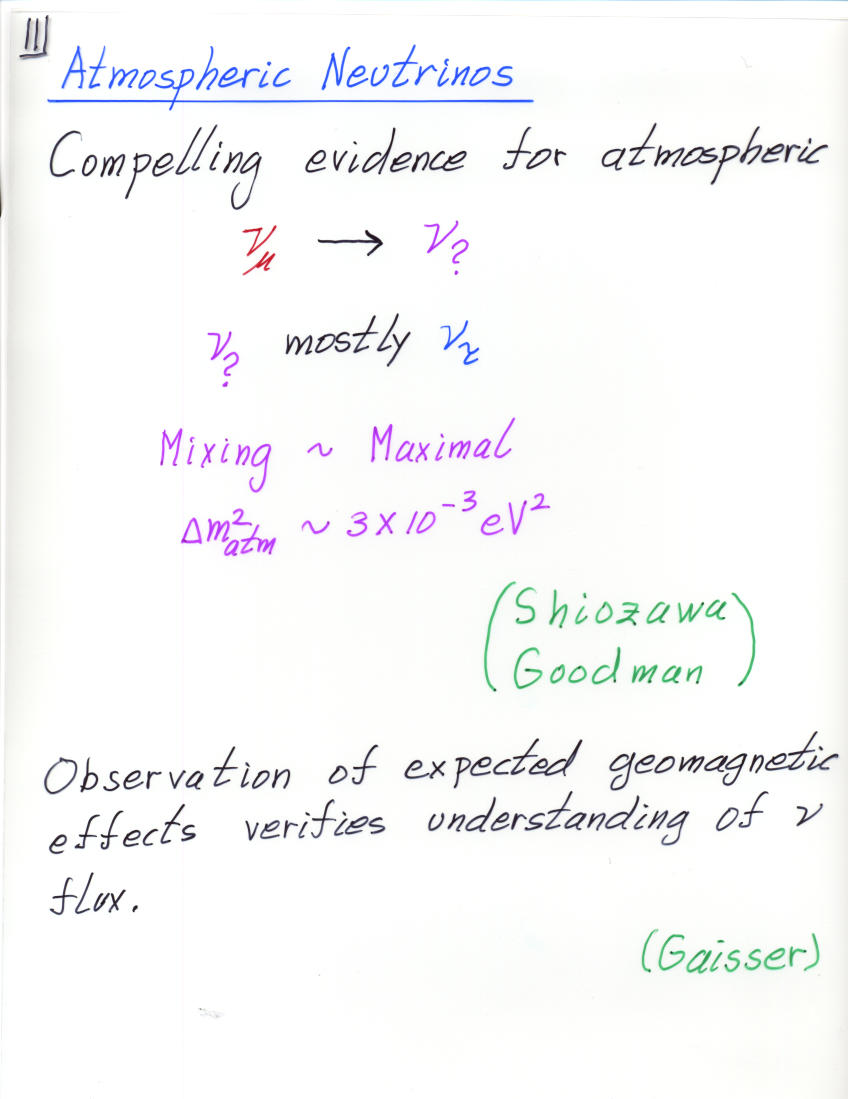 III
Atmospheric Neutrinos
Compelling evidence for atmospheric
νμ → ν?
ν? mostly ντ
Mixing ~ Maximal
Δm²atm ~ 3 × 10⁻³ eV²
(Shiozawa
Goodman)
Observation of expected geomagnetic
effects verifies understanding of ν
flux.
(Gaisser)